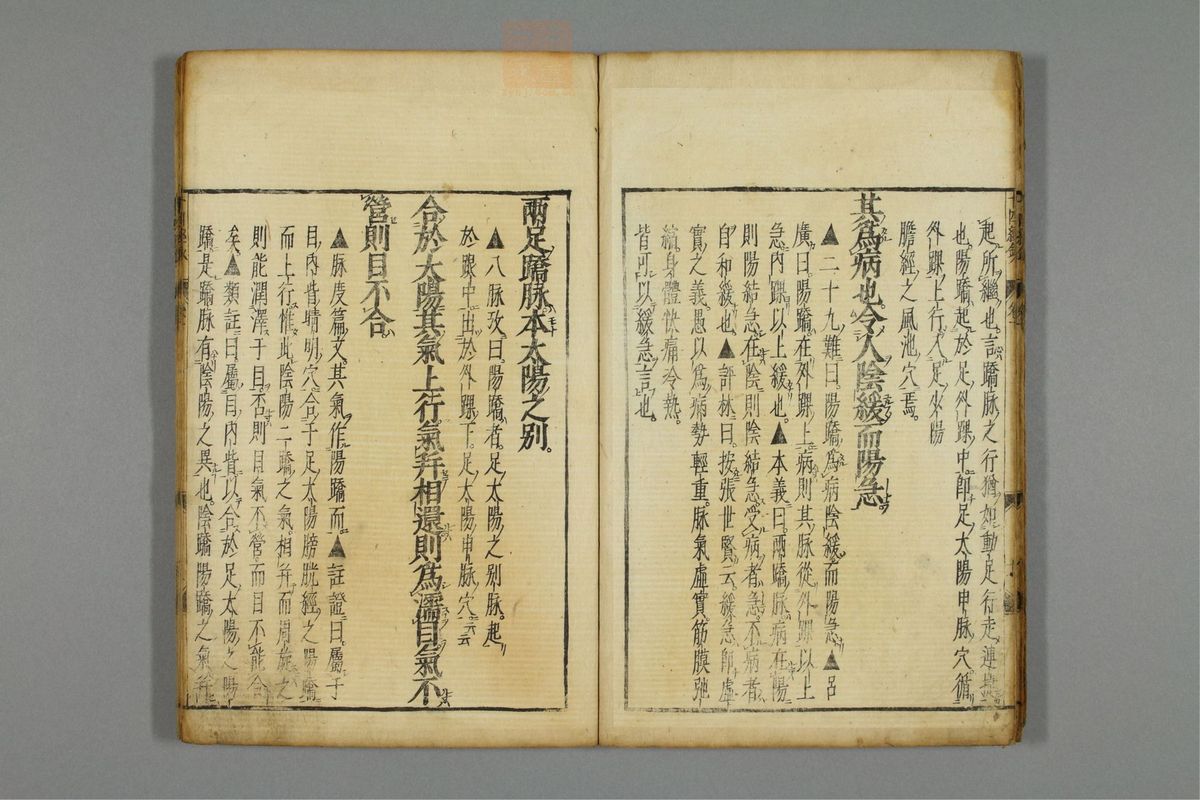 起所繼也言蹻脉之行猶如動足行走連
也陽蹻起於足外踝中即足太陽申脉穴循
外踝上行入足少陽
膽經之風池穴焉
其爲病也令人陰緩而陽急
▲二十九難曰陽蹻為病陰緩而陽急▲呂
廣曰陽蹻在外踝上病則其脉從外踝以上
急内踝以上緩也▲本義曰兩蹻脉病在陽
則陽結急在陰則陰結急受病者急不病者
自和緩也▲評林曰按張世賢云緩急即虚
實之義愚以爲病勢輕重脉氣虚實筋膜弛
縮身體快痛冷熱
皆可以緩急言也
兩足蹻脉本太陽之別
▲八脉攷曰陽蹻者足太陽之别脉起
於跟中出於外踝下足太陽申脉穴云云
合於太陽其氣上行氣并相還則爲濡目氣不
營則目不合
▲脉度篇文其氣作陽蹻而▲註證曰屬于
目内眥睛明穴合于足太陽膀胱經之陽蹻
而上行惟此陰陽二蹻之氣相并而周旋之
則能潤澤于目否則目氣不營而目不能合
矣▲類註曰屬目内眥以合於足太陽之陽
蹻是蹻脉有陰陽之異也陰蹻陽蹻之氣并